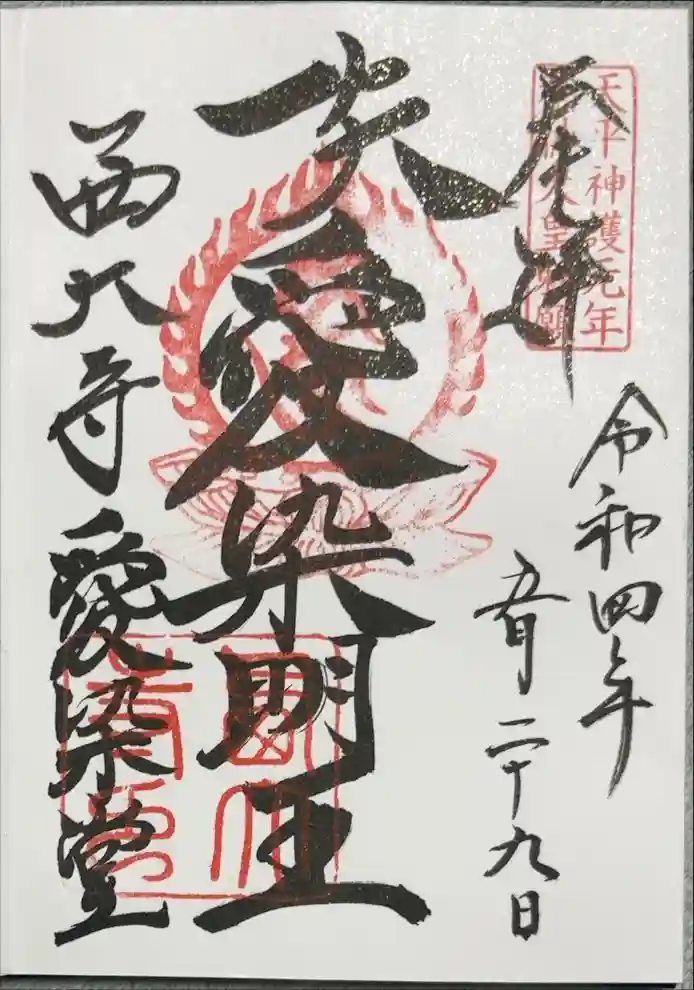 奉拝
天平神護元年
天皇勅願
令和四年
五月二十九日
大愛染明王
西大寺愛染堂